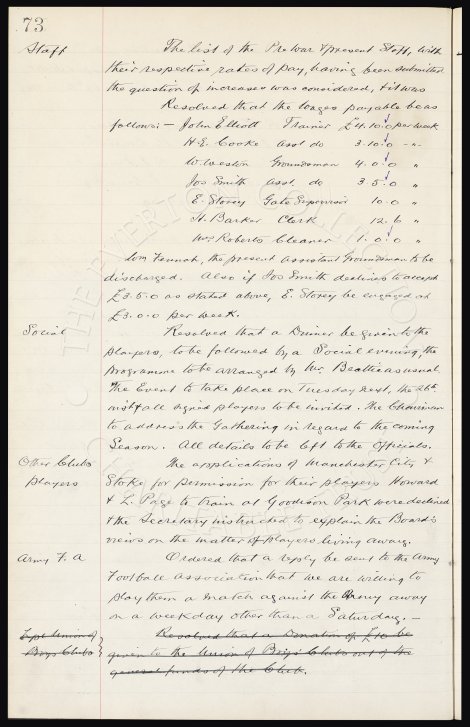 73
Staff The list of the Pre War & present Staff, with
their respective rates of pay, having been submitted
the question of increases was considered, & it was
Resolved that the wages payable be as
follows:— John Elliott Trainer £4.10.0 per week
H.E. Cooke asst do 3.10.0 -"-
W. Weston Groundsman 4.0.0 "
Jos Smith asst. do 3.5.0 "
E. Storey Gate Supervisor 10.0 "
H. Barker Clerk 12.6 "
Mrs Roberts Cleaner 1.0.0 "
Tom Fennah, the present Assistant Groundsman to be
discharged. Also if Jos Smith declines to accept
£3.5.0 as stated above, E. Storey be engaged at
£3.0.0 per week.
Social Resolved that a Dinner be given to the
players, to be followed by a Social evening, the
programme to be arranged by Mr. Beattie as usual.
The Event to take place on Tuesday next, the 26th
inst & all signed players to be invited. The Chairman
to address the Gathering in regard to the coming
Season. All details to be left to the Officials.
Other Clubs The applications of Manchester City &
players Stoke for permission for their players Howard
& L. Page to train at Goodison Park were declined
& the Secretary instructed to explain the Board's
views on the matter of players living away.
Army F. A Ordered that a reply be sent to the Army
Football Association that we are willing to
play them a match against the Army away
on a weekday other than a Saturday. —
Lpl Union of Resolved that a Donation of £10 be
Boys Clubs given to the Union of Boys' Clubs out of the
general funds of the Club.